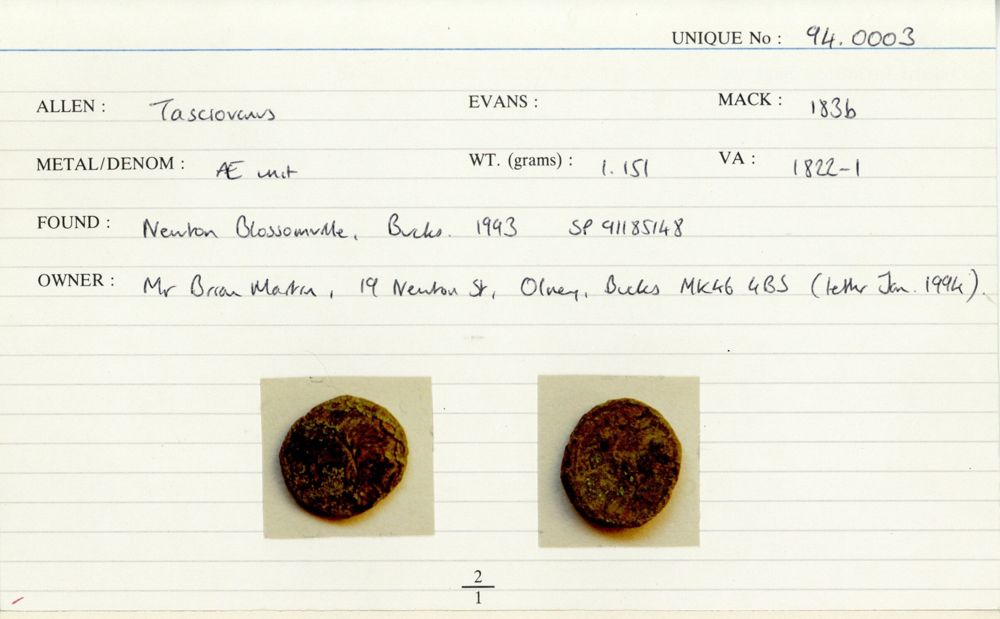 UNIQUE No : 94.0003
ALLEN : Tasciovanus EVANS : MACK : 183b
METAL/DENOM : Æ unit WT. (grams) : 1.151 VA : 1822-1
FOUND : Newton Blossomville, Bucks. 1993 SP 91185148
OWNER : Mr Brian Martin, 19 Newton St, Olney, Bucks MK46 4BS (letter Jan. 1994).
2
1